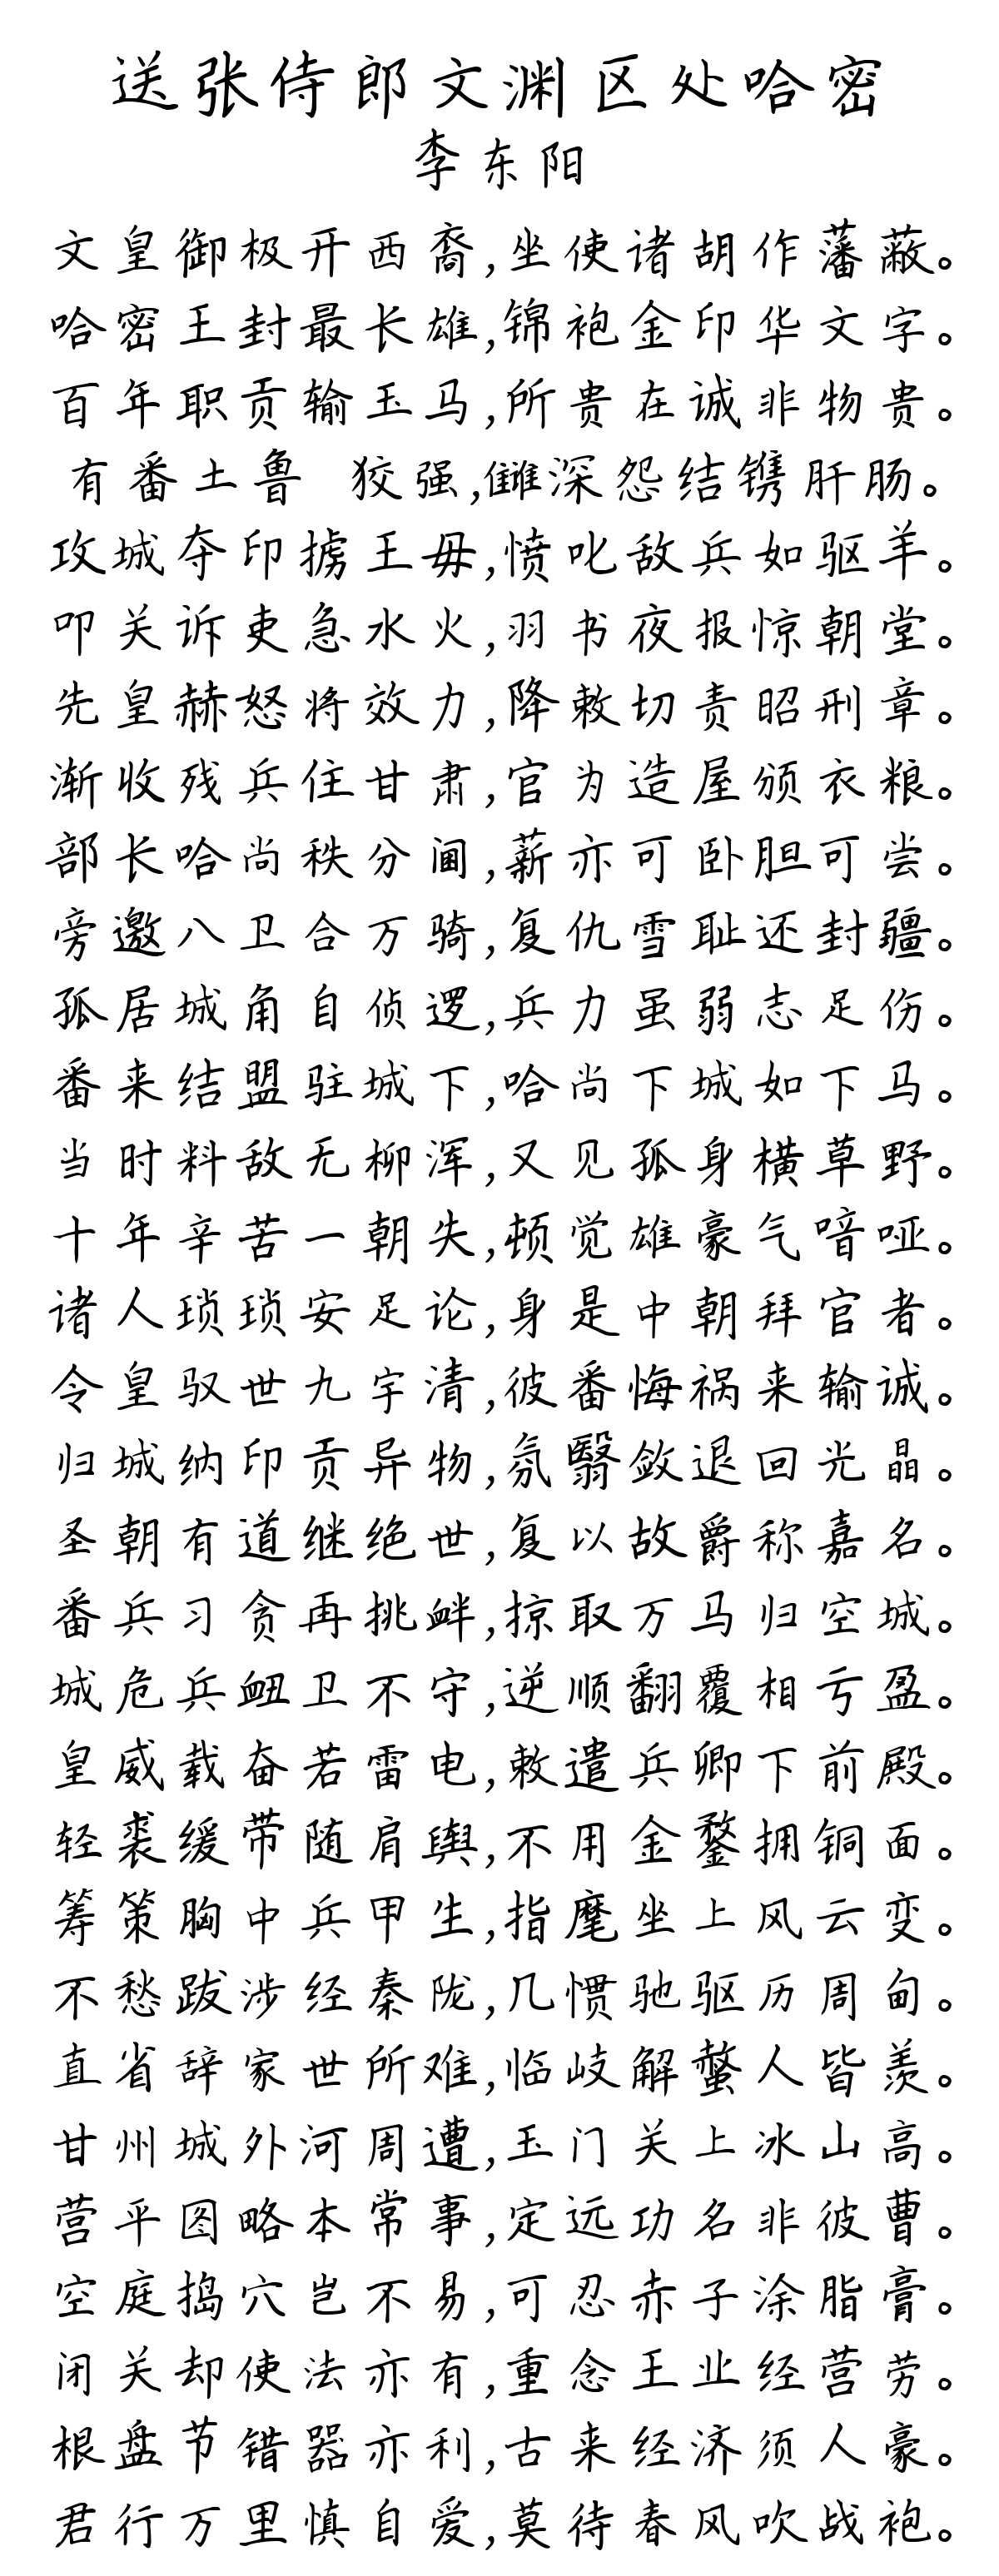 送张侍郎文渊区处哈密
李东阳
文皇御极开西裔,坐使诸胡作藩蔽。
哈密王封最长雄,锦袍金印华文字。
百年职贡输玉马,所贵在诚非物贵。
有番土鲁 狡强,雠深怨结镌肝肠。
攻城夺印掳王毋,愤叱敌兵如驱羊。
叩关诉吏急水火,羽书夜报惊朝堂。
先皇赫怒将效力,降敕切责昭刑章。
渐收残兵住甘肃,官为造屋颁衣粮。
部长哈尚秩分阃,薪亦可卧胆可尝。
旁邀八卫合万骑,复仇雪耻还封疆。
孤居城角自侦逻,兵力虽弱志足伤。
番来结盟驻城下,哈尚下城如下马。
当时料敌无柳浑,又见孤身横草野。
十年辛苦一朝失,顿觉雄豪气喑哑。
诸人琐琐安足论,身是中朝拜官者。
令皇驭世九宇清,彼番悔祸来输诚。
归城纳印贡异物,氛翳敛退回光晶。
圣朝有道继绝世,复以故爵称嘉名。
番兵习贪再挑衅,掠取万马归空城。
城危兵衄卫不守,逆顺翻覆相亏盈。
皇威载奋若雷电,敕遣兵卿下前殿。
轻裘缓带随肩舆,不用金鍪拥铜面。
筹策胸中兵甲生,指麾坐上风云变。
不愁跋涉经秦陇,几惯驰驱历周甸。
直省辞家世所难,临岐解螯人皆羡。
甘州城外河周遭,玉门关上冰山高。
营平图略本常事,定远功名非彼曹。
空庭捣穴岂不易,可忍赤子涂脂膏。
闭关却使法亦有,重念王业经营劳。
根盘节错器亦利,古来经济须人豪。
君行万里慎自爱,莫待春风吹战袍。